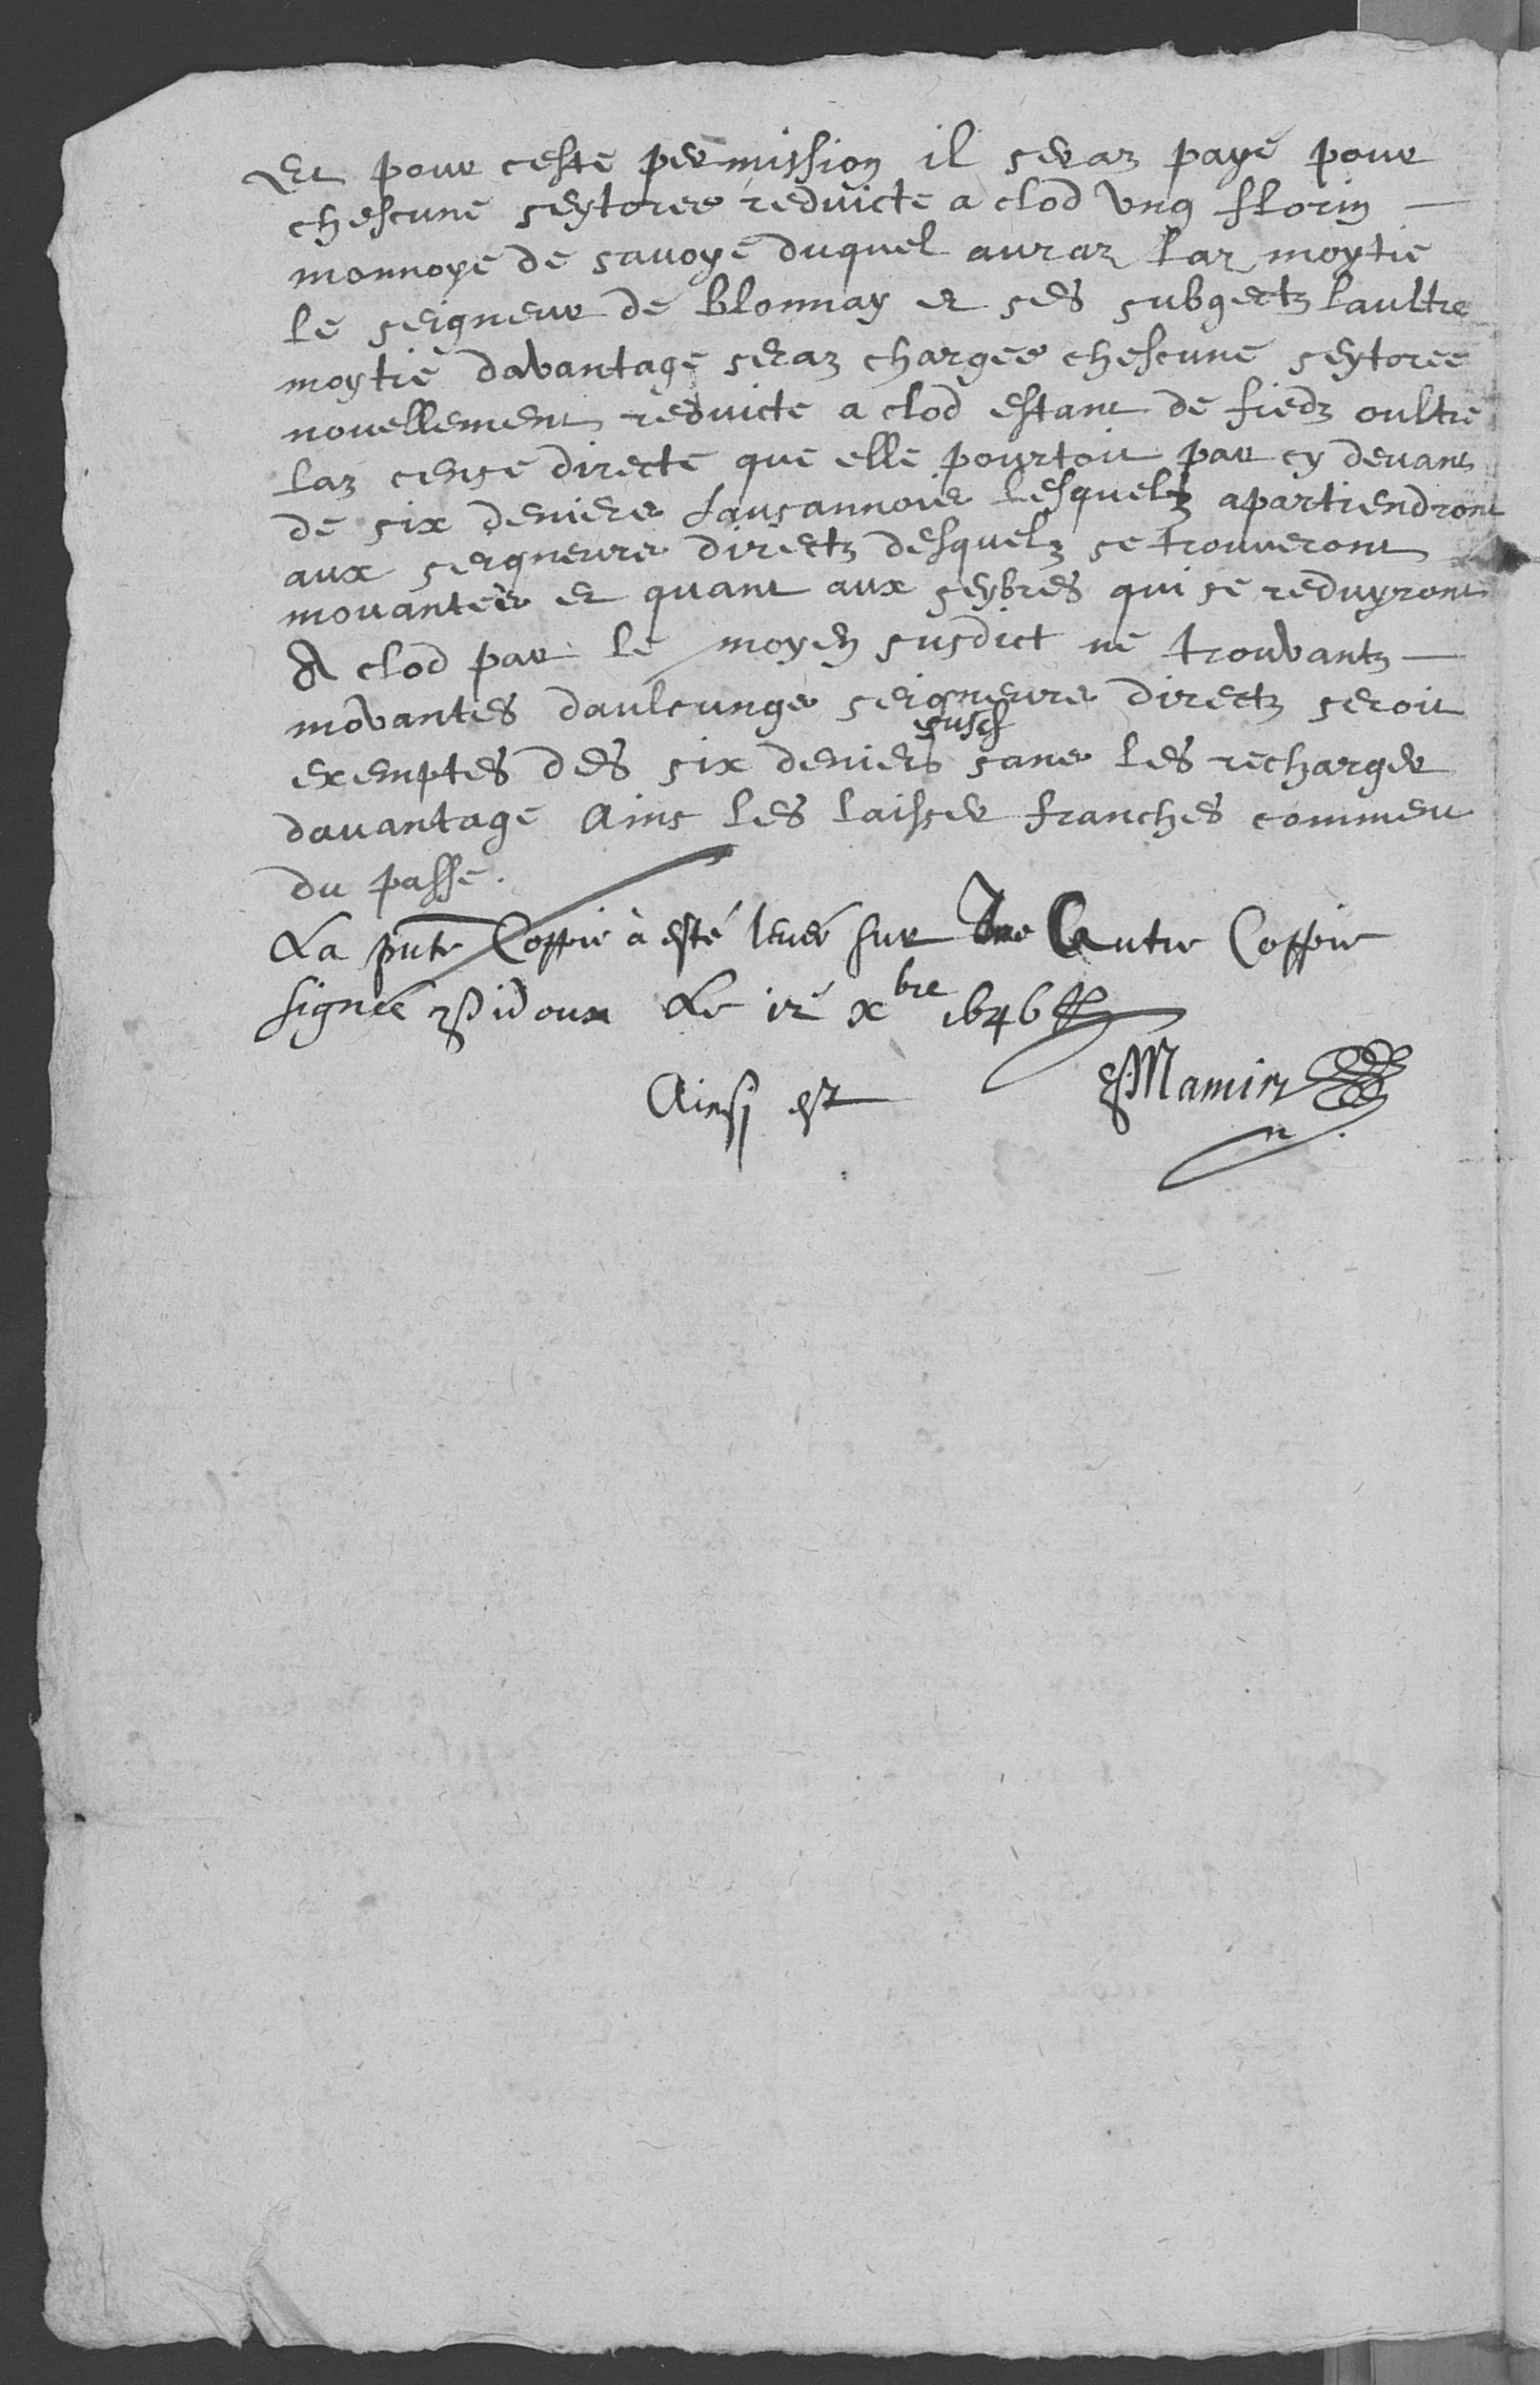 Et pour ceste permission il seraz paye pour
chescune seytoree reduicte a clod ung florin
monnoye de savoye duquel auraz laz moytie
le seigneur de blonnay et ses subgectz laultre
moytie davantage seraz chargee chescune seytoree
novellement reduicte a clod estant de fiedz oultre
laz cense directe que elle pourtoit par cy devant
de six deniers Lausannois lesquelz apartiendront
aux seigneurs directz desquelz se trouveront
mouantes et quant aux seybres qui se reduyront
A clod par le moyen susdict ne trouvantz
movantes daulcungs seigneurs directz seroit
exemptes des six deniers susd sans les recharger
davantage Ains les laisser franches comment
du passe.
La pnte Coppie à esté levée sur Une Autre Coppie
signée Pidoux Le 12e xbre 1646
Ainsi est Mamin